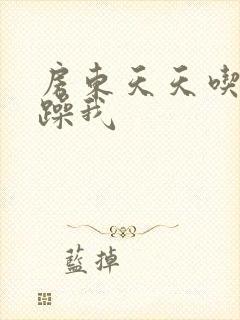 房東天天喫
躁我
藍掉